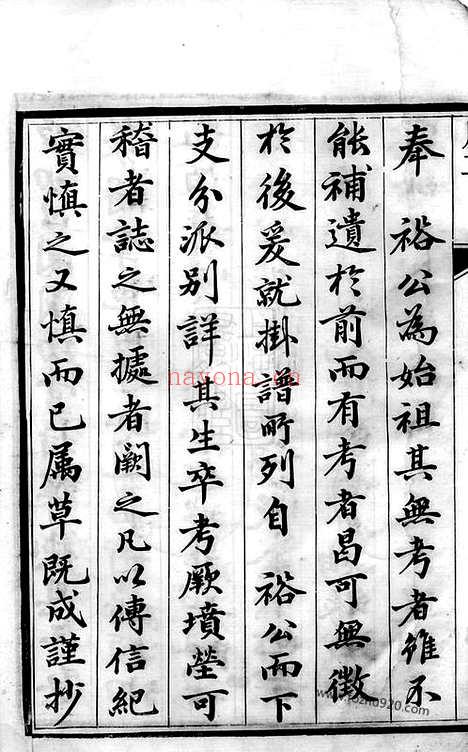 奉 裕公為始祖其無考者雖不
能補遺於前而有考者曷可無徵
於後爰就掛譜所列自 裕公而下
支分派別詳其生卒考厥墳塋可
稽者誌之無據者闕之凡以傳信紀
實慎之又慎而已属草既成謹抄